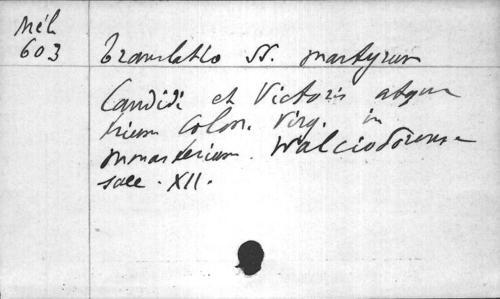 Mél
603
translatio SS. martyrum
Candidi et Victoris atque
trium Colon. Virg. in
monasterium Walciodorense
saec. XII.